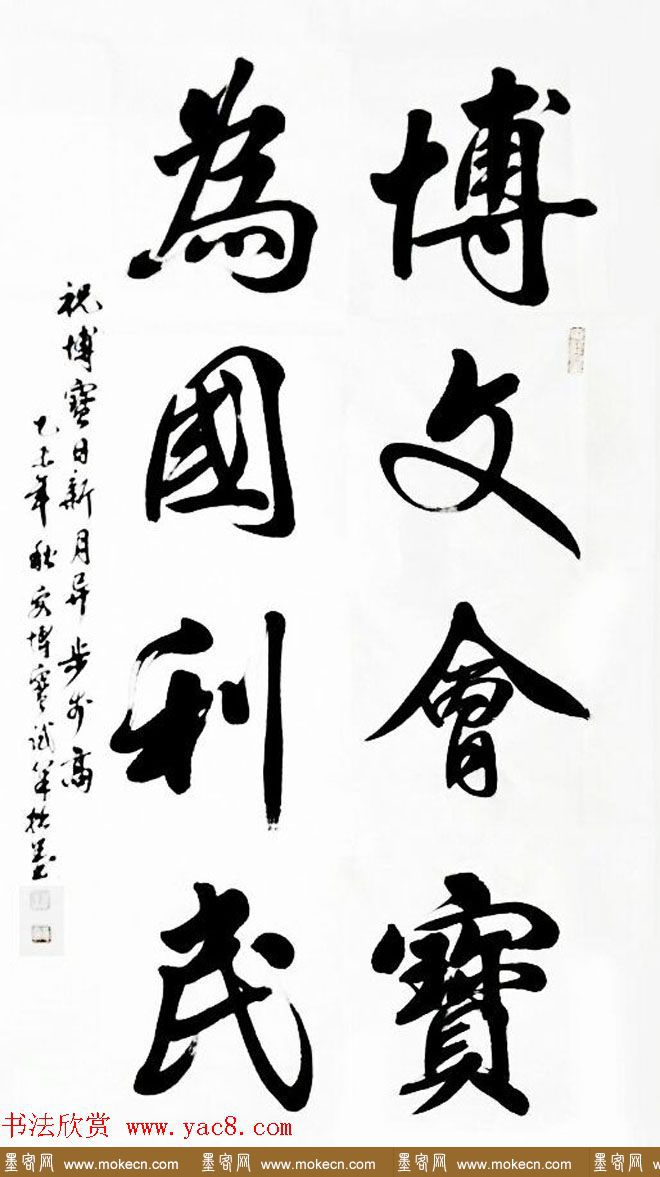 博文會寶
為國利民
祝博寶日新月异步步高
乙未年秋安博寶試筆拙墨
书法欣赏 www.yac8.com
墨客网 www.mokecn.com 墨客网 www.mokecn.com 墨客网 www.mokecn.com